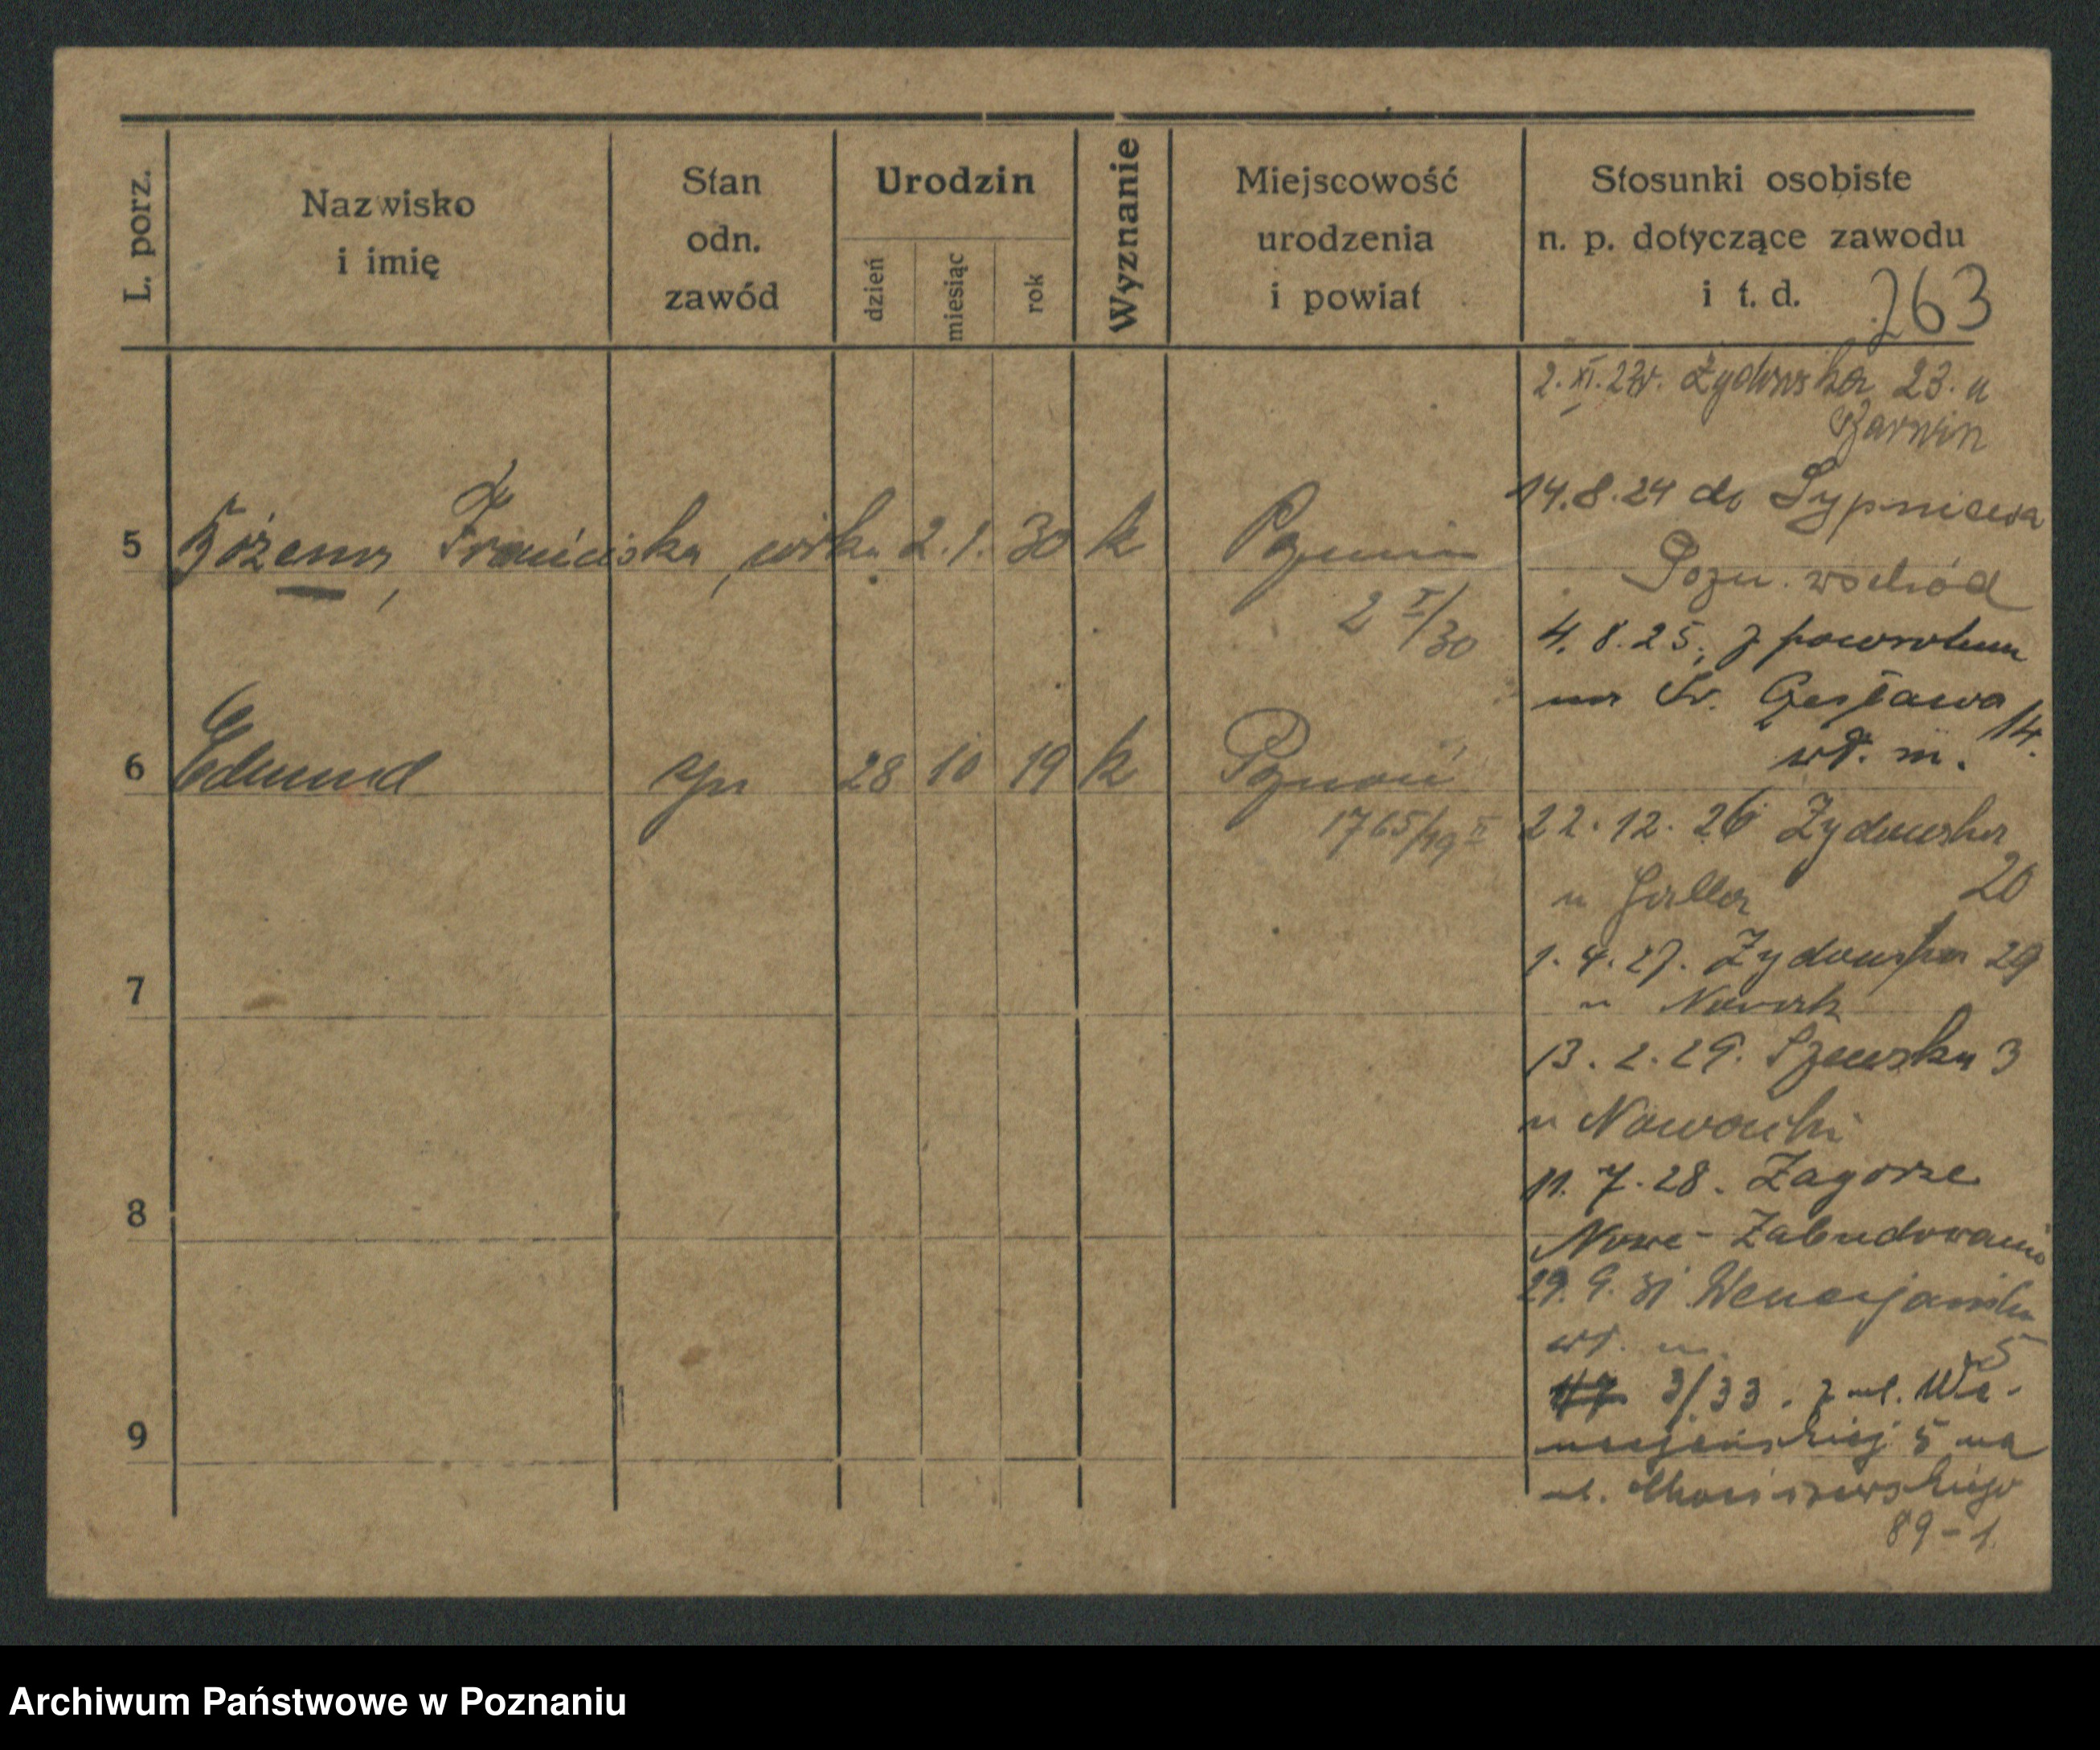 L. porz.
Nazwisko
i imię
Stan
odn.
zawód
Urodzin
dzień
miesiąc
rok
Wyznanie
Miejscowość
urodzenia
i powiat
Stosunki osobiste
n. p. dotyczące zawodu
i t. d.
263
5 Bożena, Franciszka, córka 2. 1. 30 k Poznań
2 I/30
6 Edmund syn 28 10 19 k Poznań
1765/19 II
7
8
9
2. XI. 23r. Żydowska 23. u
Barwin
14.8.24 do Sypniewa
Pozn. wschód
4. 8. 25. z powrotem
na Św. Czesława 14.
wł. m.
22. 12. 26 Żydowska
20
u Haller
1. 4. 27. Żydowska 29
u Nowak
13. 2. 29. Szewska 3
u Nowacki
11. 7. 28. Zagórze
Nowe - Zabudowanie
29. 9. 31 Wenecjańska
wł. m. 5
3/33. z ul. We-
necjańskiej 5 na
ul. 
89 - 1
Archiwum Państwowe w Poznaniu